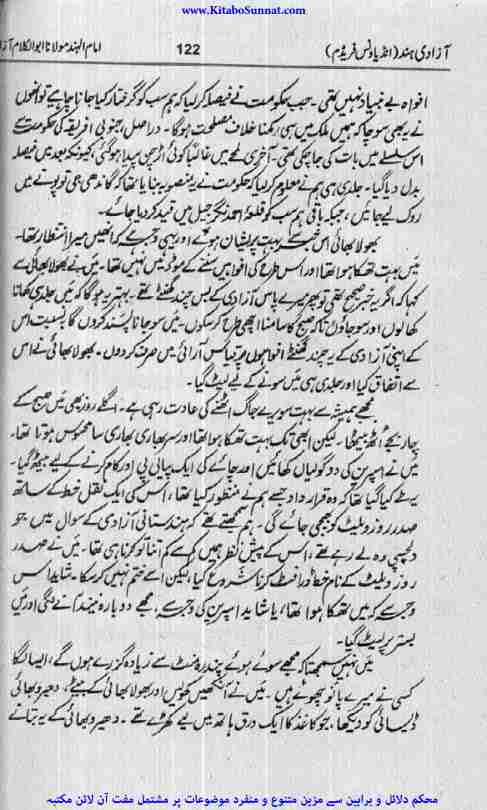 www.KitaboSunnat.com
آزادی ہند (انڈیا ونس فریڈم) 122 امام الہند مولانا ابوالکلام آزا
افواہ بے بنیاد نہیں تھی۔ جب حکومت نے فیصلہ کر لیا کہ ہم سب کو گرفتار کیا جانا چاہیے تو انھوں
نے یہ بھی سوچا کہ ہمیں ملک میں ہی رکھنا خلافِ مصلحت ہوگا۔ دراصل، جنوبی افریقہ کی حکومت سے
اس سلسلے میں بات کی جا چکی تھی۔ آخری لمحے میں غالباً کوئی اڑچن پیدا ہوگئی، کیونکہ بعد میں فیصلہ
بدل دیا گیا۔ جلدی ہی ہم نے معلوم کر لیا کہ حکومت نے یہ منصوبہ بنایا تھا کہ گاندھی جی تو پونے میں
روک لیے جائیں، جبکہ باقی ہم سب کو قلعۂ احمد نگر جیل میں قید کر دیا جائے۔
بھولا بھائی اس خبر سے بہت پریشان ہوئے اور یہی وجہ ہے کہ انھیں میرا انتظار تھا۔
میں بہت تھکا ہوا تھا اور اس طرح کی افواہیں سننے کے موڈ میں نہیں تھا۔ میں نے بھولا بھائی سے
کہا کہ اگر یہ خبر صحیح تھی تو پھر میرے پاس آزادی کے بس چند گھنٹے تھے۔ بہتر یہ ہوگا کہ میں جلدی کھانا
کھا لوں اور سو جاؤں تاکہ صبح کا سامنا اچھی طرح کر سکوں۔ میں سو جانا پسند کروں گا بہ نسبت اس
کے اپنی آزادی کے یہ چند گھنٹے افواہوں پر قیاس آرائی میں صرف کر دوں۔ بھولا بھائی نے اس
سے اتفاق کیا اور جلدی ہی میں سونے کے لیے لیٹ گیا۔
مجھے ہمیشہ سے بہت سویرے جاگ اٹھنے کی عادت رہی ہے۔ اگلے روز بھی میں صبح کے
چار بجے اٹھ بیٹھا۔ لیکن ابھی تک بہت تھکا ہوا تھا اور سر بھاری بھاری سا محسوس ہوتا تھا۔
میں نے اسپرین کی دو گولیاں کھائیں اور چائے کی ایک پیالی پی اور کام کرنے کے لیے بیٹھ گیا۔
یہ طے کیا گیا تھا کہ وہ قرارداد جسے ہم نے منظور کیا تھا، اس کی ایک نقل خط کے ساتھ
صدر روز ویلٹ کو بھیجی جائے گی۔ ہم سمجھتے تھے کہ ہندستانی آزادی کے سوال میں جو
دلچسپی وہ لے رہے تھے، اس کے پیش نظر ہمیں کم سے کم اتنا تو کرنا ہی تھا۔ میں نے صدر
روز ویلٹ کے نام خط ڈرافٹ کرنا شروع کیا، لیکن اسے ختم نہیں کر سکا۔ شاید اس
وجہ سے کہ میں تھکا ہوا تھا، یا شاید اسپرین کی وجہ سے، مجھے دوبارہ نیند آنے لگی اور میں
بستر پر لیٹ گیا۔
میں نہیں سمجھتا کہ مجھے سوئے ہوئے پندرہ منٹ سے زیادہ گزرے ہوں گے، ایسا لگا
کسی نے میرے پانو چھوئے ہیں۔ میں نے آنکھیں کھولیں اور بھولا بھائی کے بیٹے، دھیرو بھائی
ڈیسائی کو دیکھا، جو کاغذ کا ایک ورق ہاتھ میں لیے کھڑے تھے۔ دھیرو بھائی کے یہ بتانے
محکم دلائل و براہین سے مزین متنوع و منفرد موضوعات پر مشتمل مفت آن لائن مکتبہ